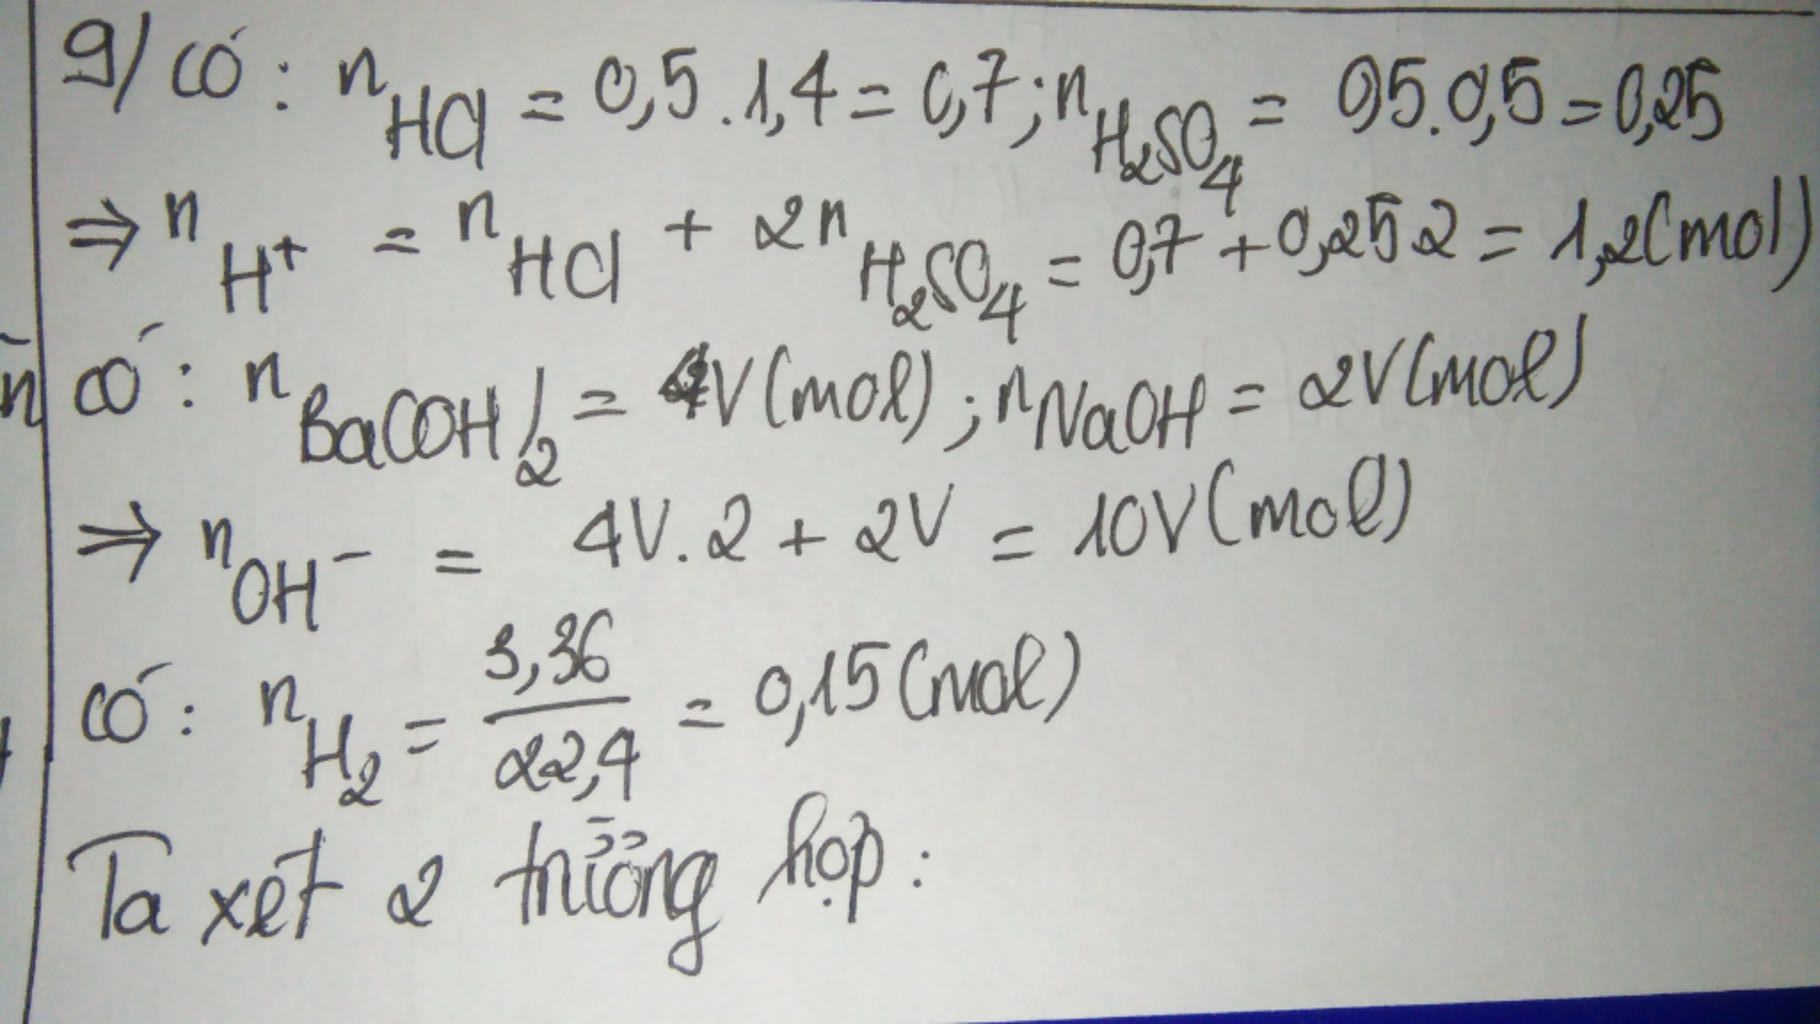 9/ có: nHCl = 0,5.1,4 = 0,7; nH₂SO₄ = 0,5.0,5 = 0,25
⇒ nH⁺ = nHCl + 2nH₂SO₄ = 0,7 + 0,25 2 = 1,2(mol)
có: nBa(OH)₂ = 4V(mol); nNaOH = 2V(mol)
⇒ nOH⁻ = 4V.2 + 2V = 10V(mol)
có: nH₂ = 3,36/22,4 = 0,15(mol)
Ta xét 2 trường hợp: